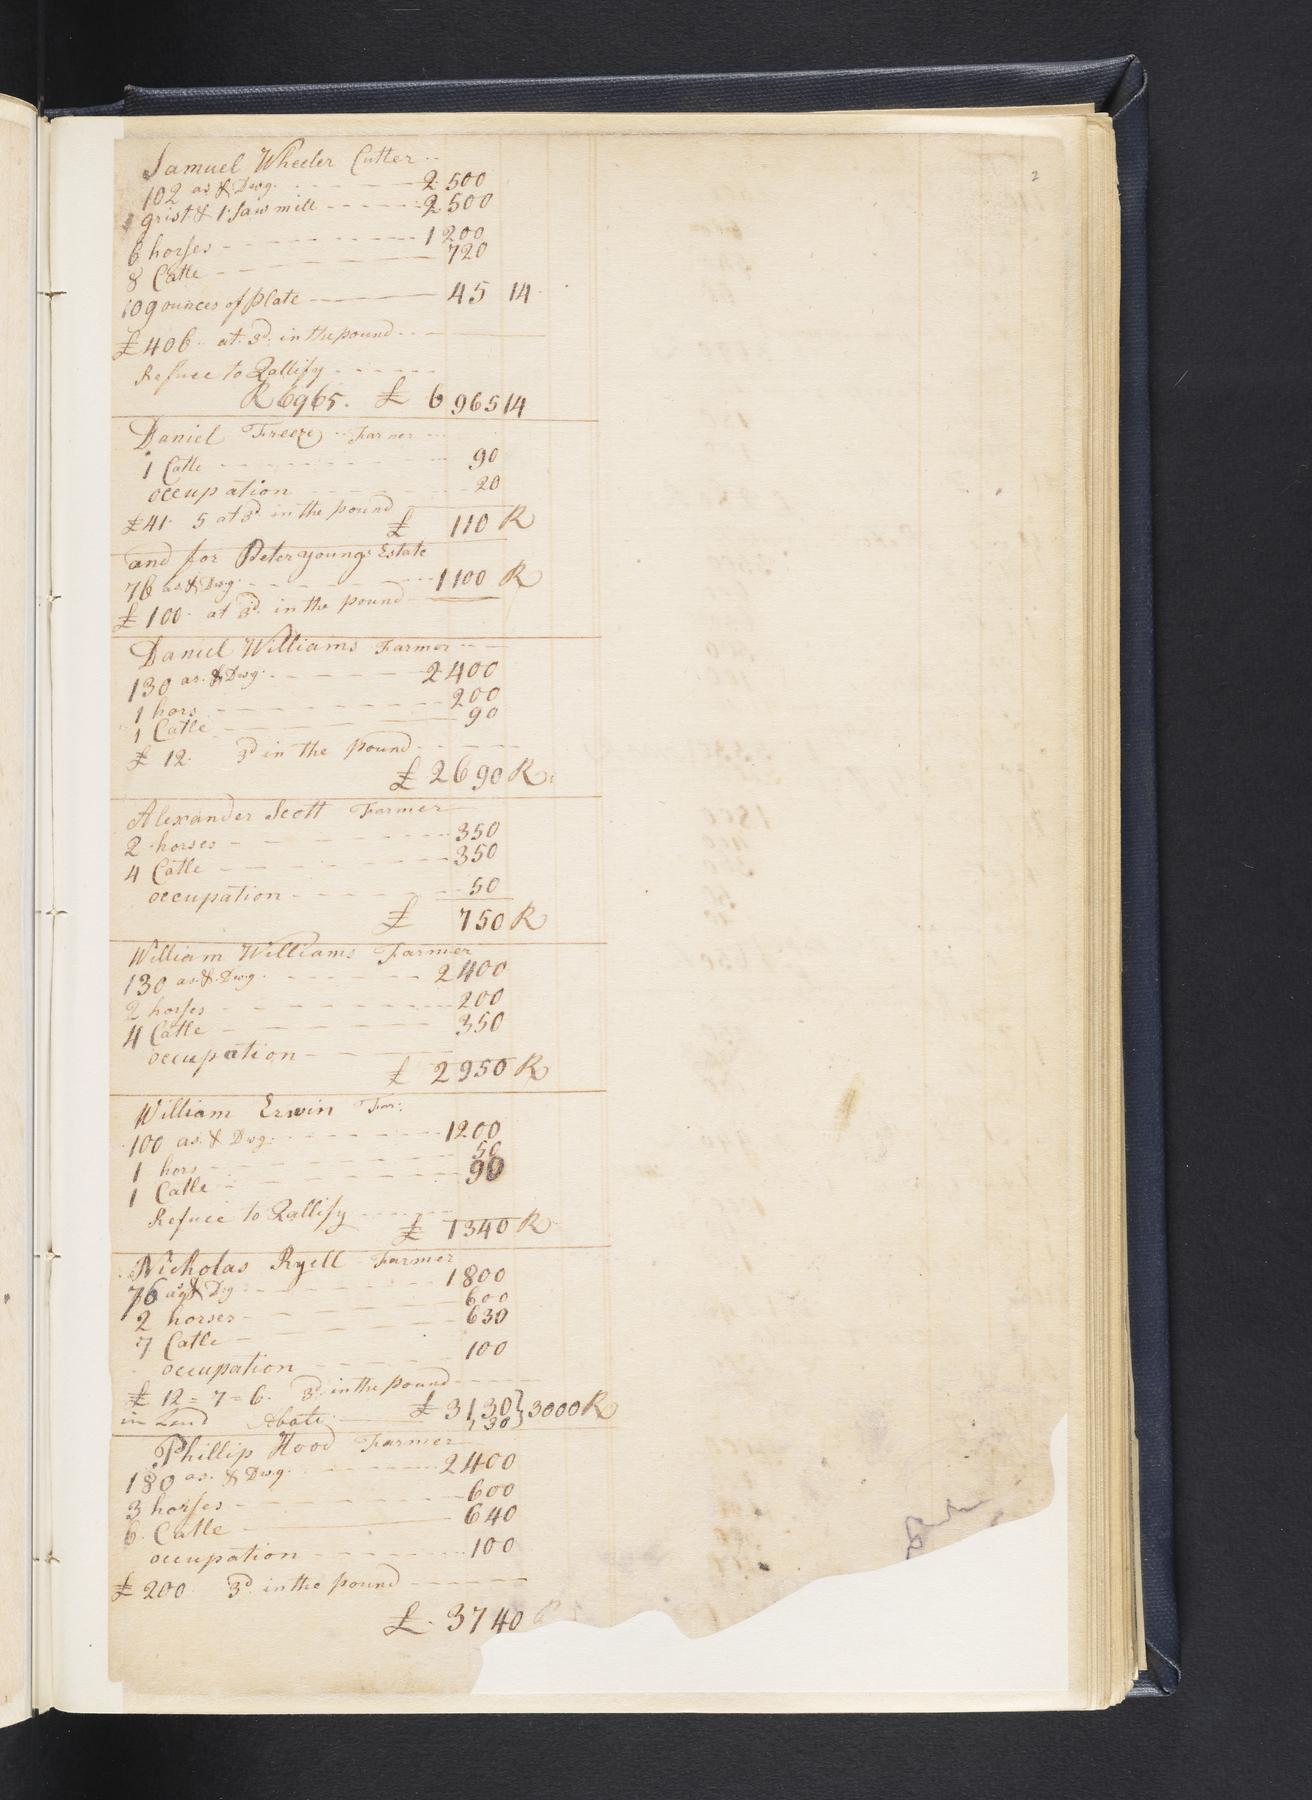 2
Samuel Wheeler Cutler
102 as & Dwg. 2500
grist & 1 Saw mill 2500
6 horses 1200
8 Catle 720
109 ounces of plate 45 14
£406 at 3d in the pound
Refuce to Qallify
R 6965. £ 6965 14
Daniel Freeze Farmer
1 Catle 90
occupation 20
£41 5 at 3d in the pound
£ 110 R
and for Peter youngs Estate
76 as & Dwg. 1100 R
£100 at 3d in the pound
Daniel Williams Farmer
130 as. & Dwg. 2400
1 hors 200
1 Catle 90
£ 12 3d in the pound
£ 2690 R
Alexander Scott Farmer
2 horses 350
4 Catle 350
occupation 50
£ 750 R
William Williams Farmer
130 as. & Dwg. 2400
2 horses 200
4 Catle 350
occupation
£ 2950 R
William Erwin Far:
100 as. & Dwg. 1200
1 hors 50
1 Catle 90
Refuce to Qallify
£ 1340 R
Nicholas Ryell Farmer
76 as & Dg 1800
2 horses 600
7 Catle 630
occupation 100
£ 12=7=6. 3d in the pound
£ 3130 } 3000 R
in Land Abate 130
Phillip Hood Farmer
180 as. & Dwg. 2400
3 horses 600
6 Catle 640
occupation 100
£ 200 3d in the pound
£. 3740 R